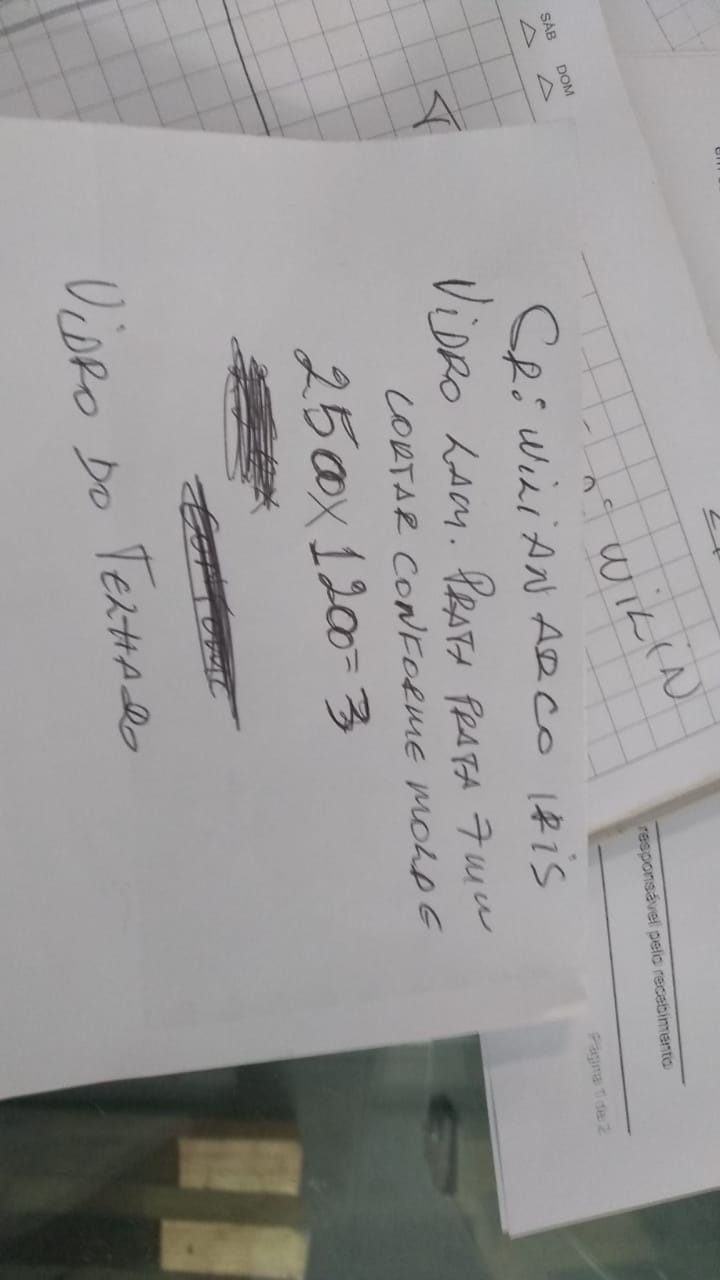 SÁB DOM
WILIN
responsável pelo recebimento
Página 1 de 2
SR: WILIAN ARCO IRIS
VIDRO LAM. PRATA PRATA 7mm
CORTAR CONFORME MOLDE
2500X1200=3
VIDRO DO TELHADO